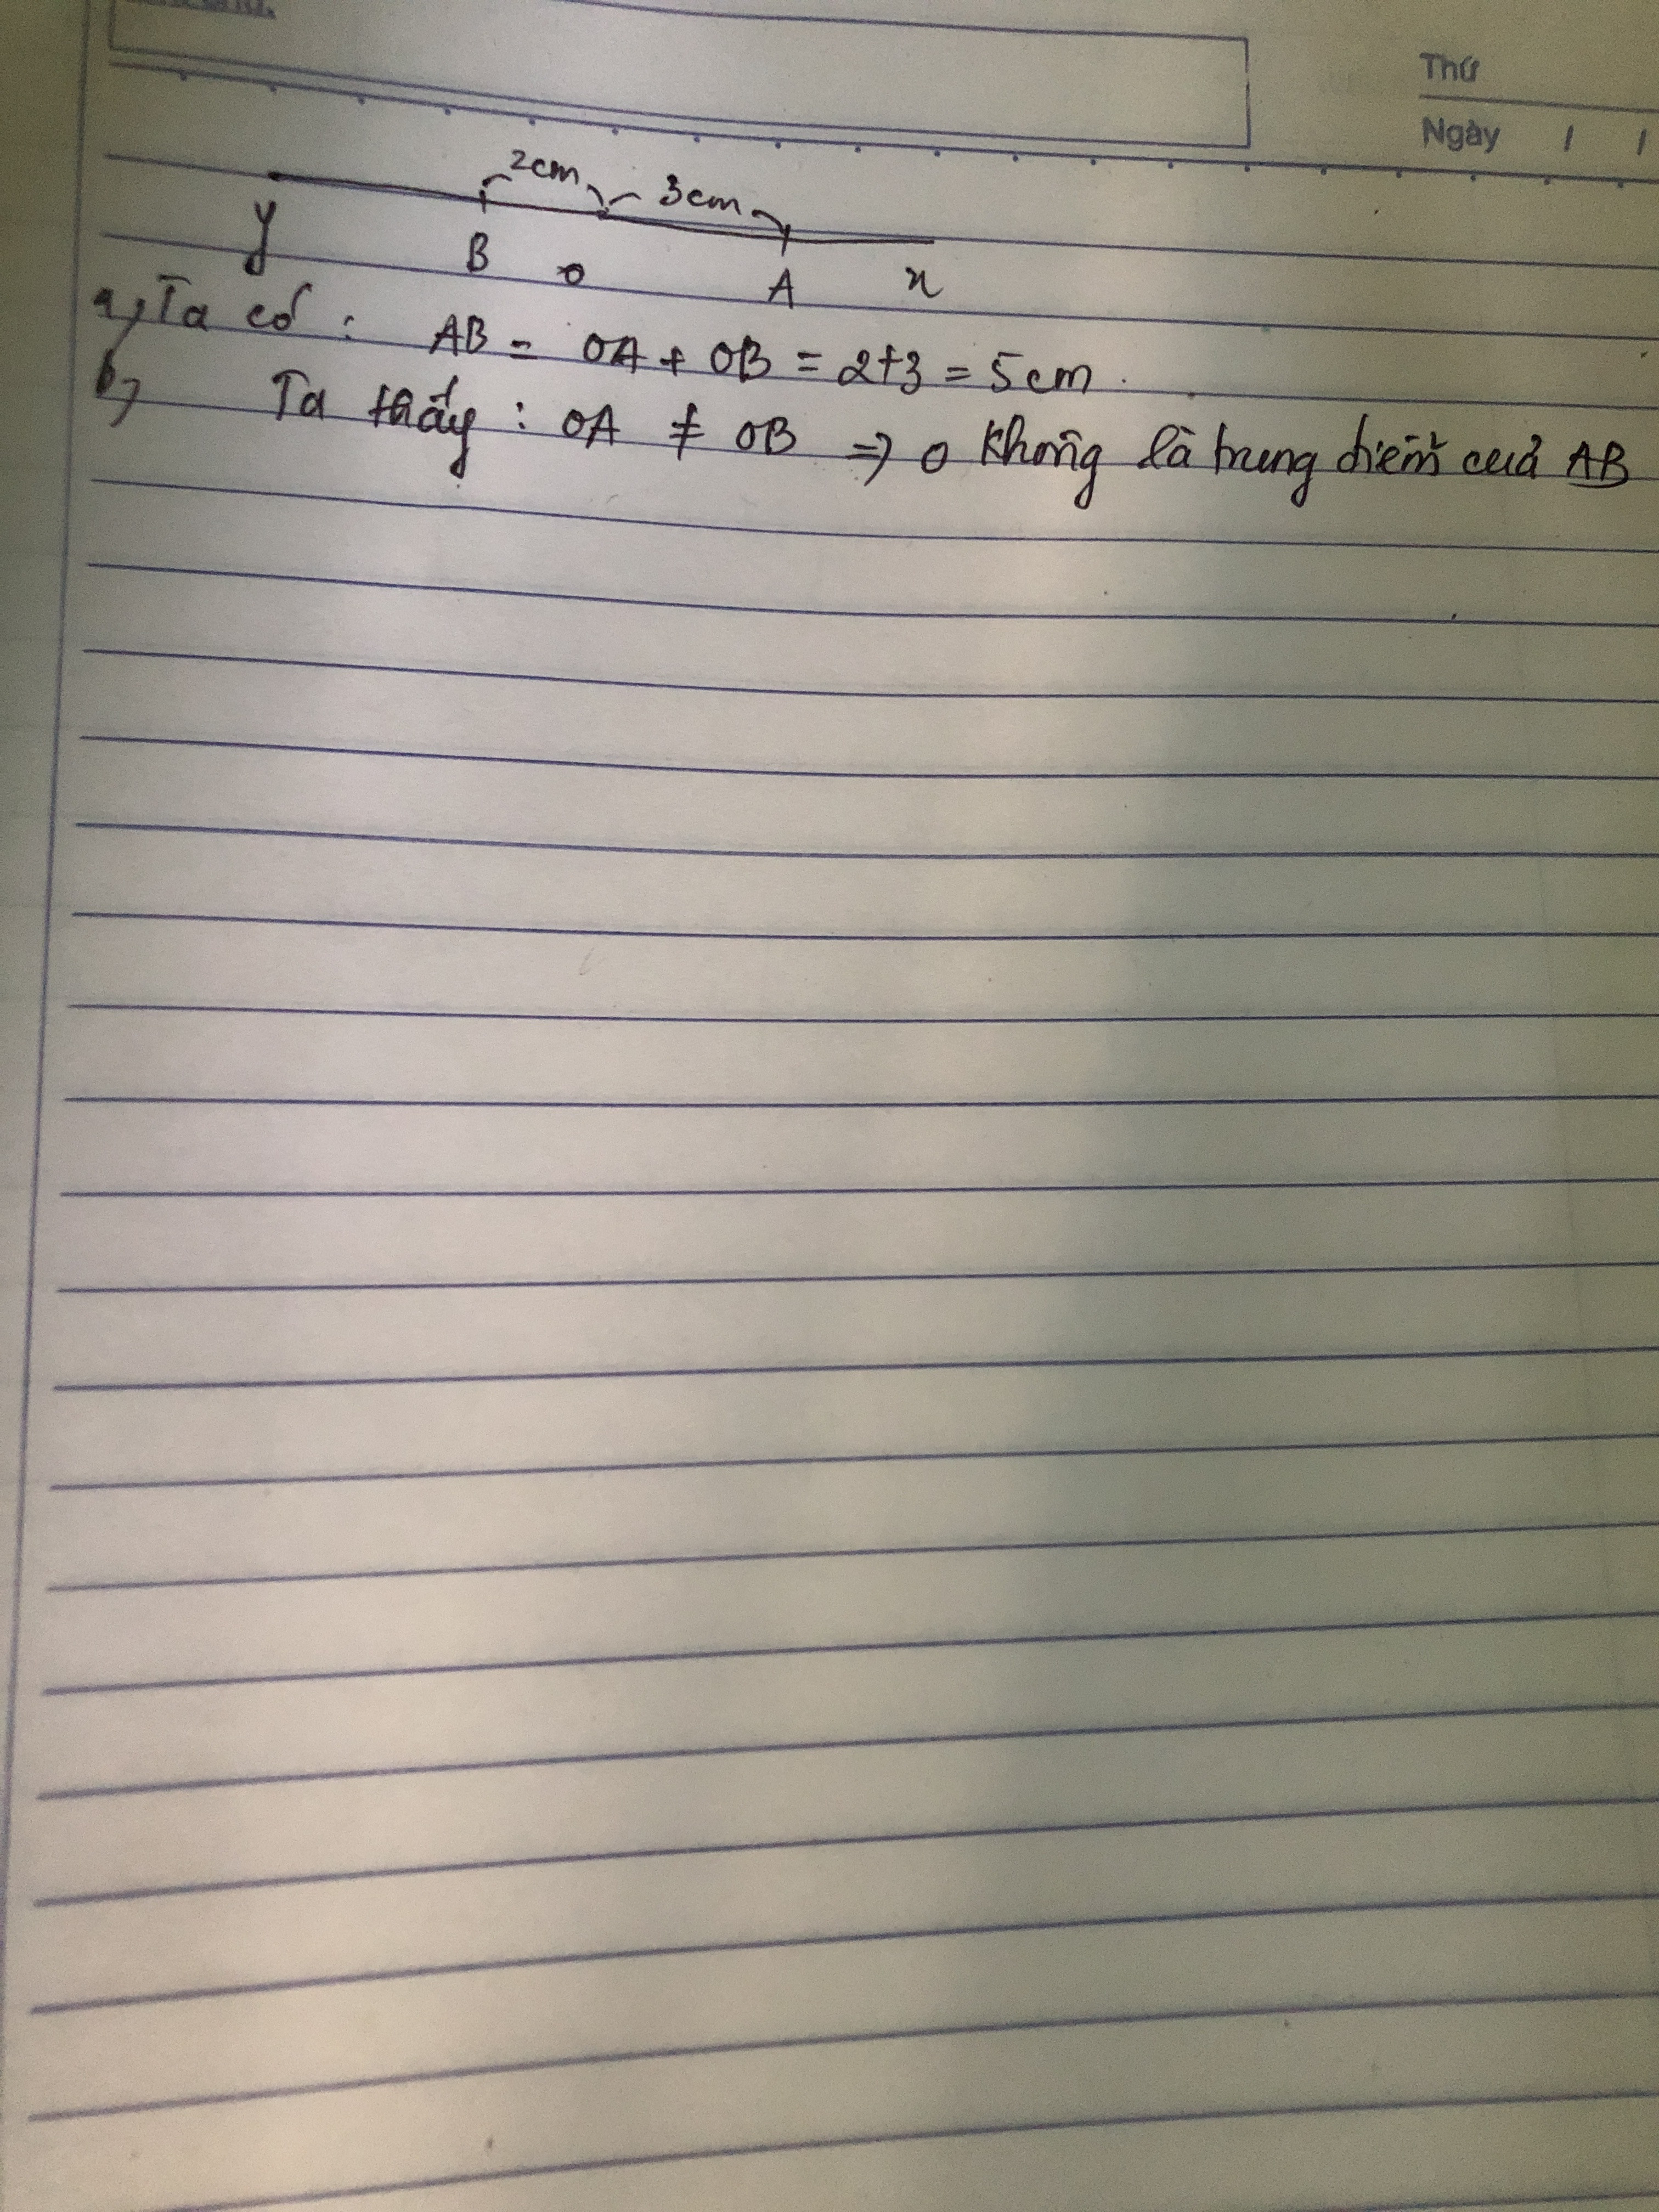 Thứ
Ngày / /
2cm 3cm
y B O A x
a, Ta có : AB = OA + OB = 2+3 = 5cm.
b, Ta thấy : OA ≠ OB => O không là trung điểm của AB